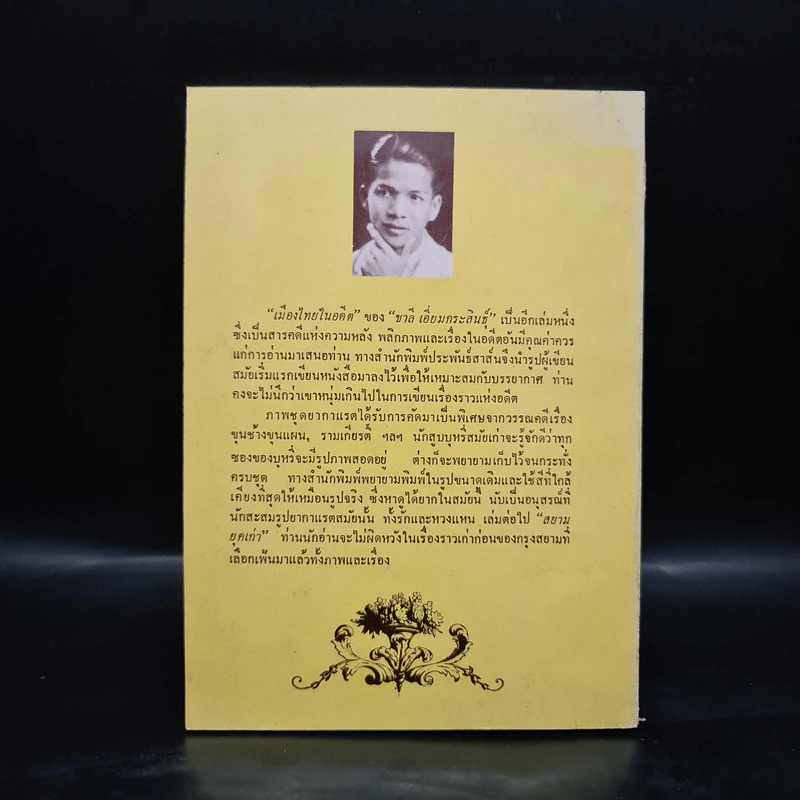 “เมืองไทยในอดีต” ของ “ชาลี เอี่ยมกระสินธุ์” เป็นอีกเล่มหนึ่ง
ซึ่งเป็นสารคดีแห่งความหลัง พลิกภาพและเรื่องในอดีตอันมีคุณค่าควร
แก่การอ่านมาเสนอท่าน ทางสำนักพิมพ์ประพันธ์สาส์นจึงนำรูปผู้เขียน
สมัยเริ่มแรกเขียนหนังสือมาลงไว้เพื่อให้เหมาะสมกับบรรยากาศ ท่าน
คงจะไม่นึกว่าเขาหนุ่มเกินไปในการเขียนเรื่องราวแห่งอดีต
ภาพชุดยากาแรตได้รับการคัดมาเป็นพิเศษจากวรรณคดีเรื่อง
ขุนช้างขุนแผน, รามเกียรติ์ ฯลฯ นักสูบบุหรี่สมัยเก่าจะรู้จักดีว่าทุก
ซองของบุหรี่จะมีรูปภาพสอดอยู่ ต่างก็จะพยายามเก็บไว้จนกระทั่ง
ครบชุด ทางสำนักพิมพ์พยายามพิมพ์ในรูปขนาดเดิมและใช้สีที่ใกล้
เคียงที่สุดให้เหมือนรูปจริง ซึ่งหาดูได้ยากในสมัยนี้ นับเป็นอนุสรณ์ที่
นักสะสมรูปยากาแรตสมัยนั้น ทั้งรักและหวงแหน เล่มต่อไป “สยาม
ยุคเก่า” ท่านนักอ่านจะไม่ผิดหวังในเรื่องราวเก่าก่อนของกรุงสยามที่
เลือกเฟ้นมาแล้วทั้งภาพและเรื่อง